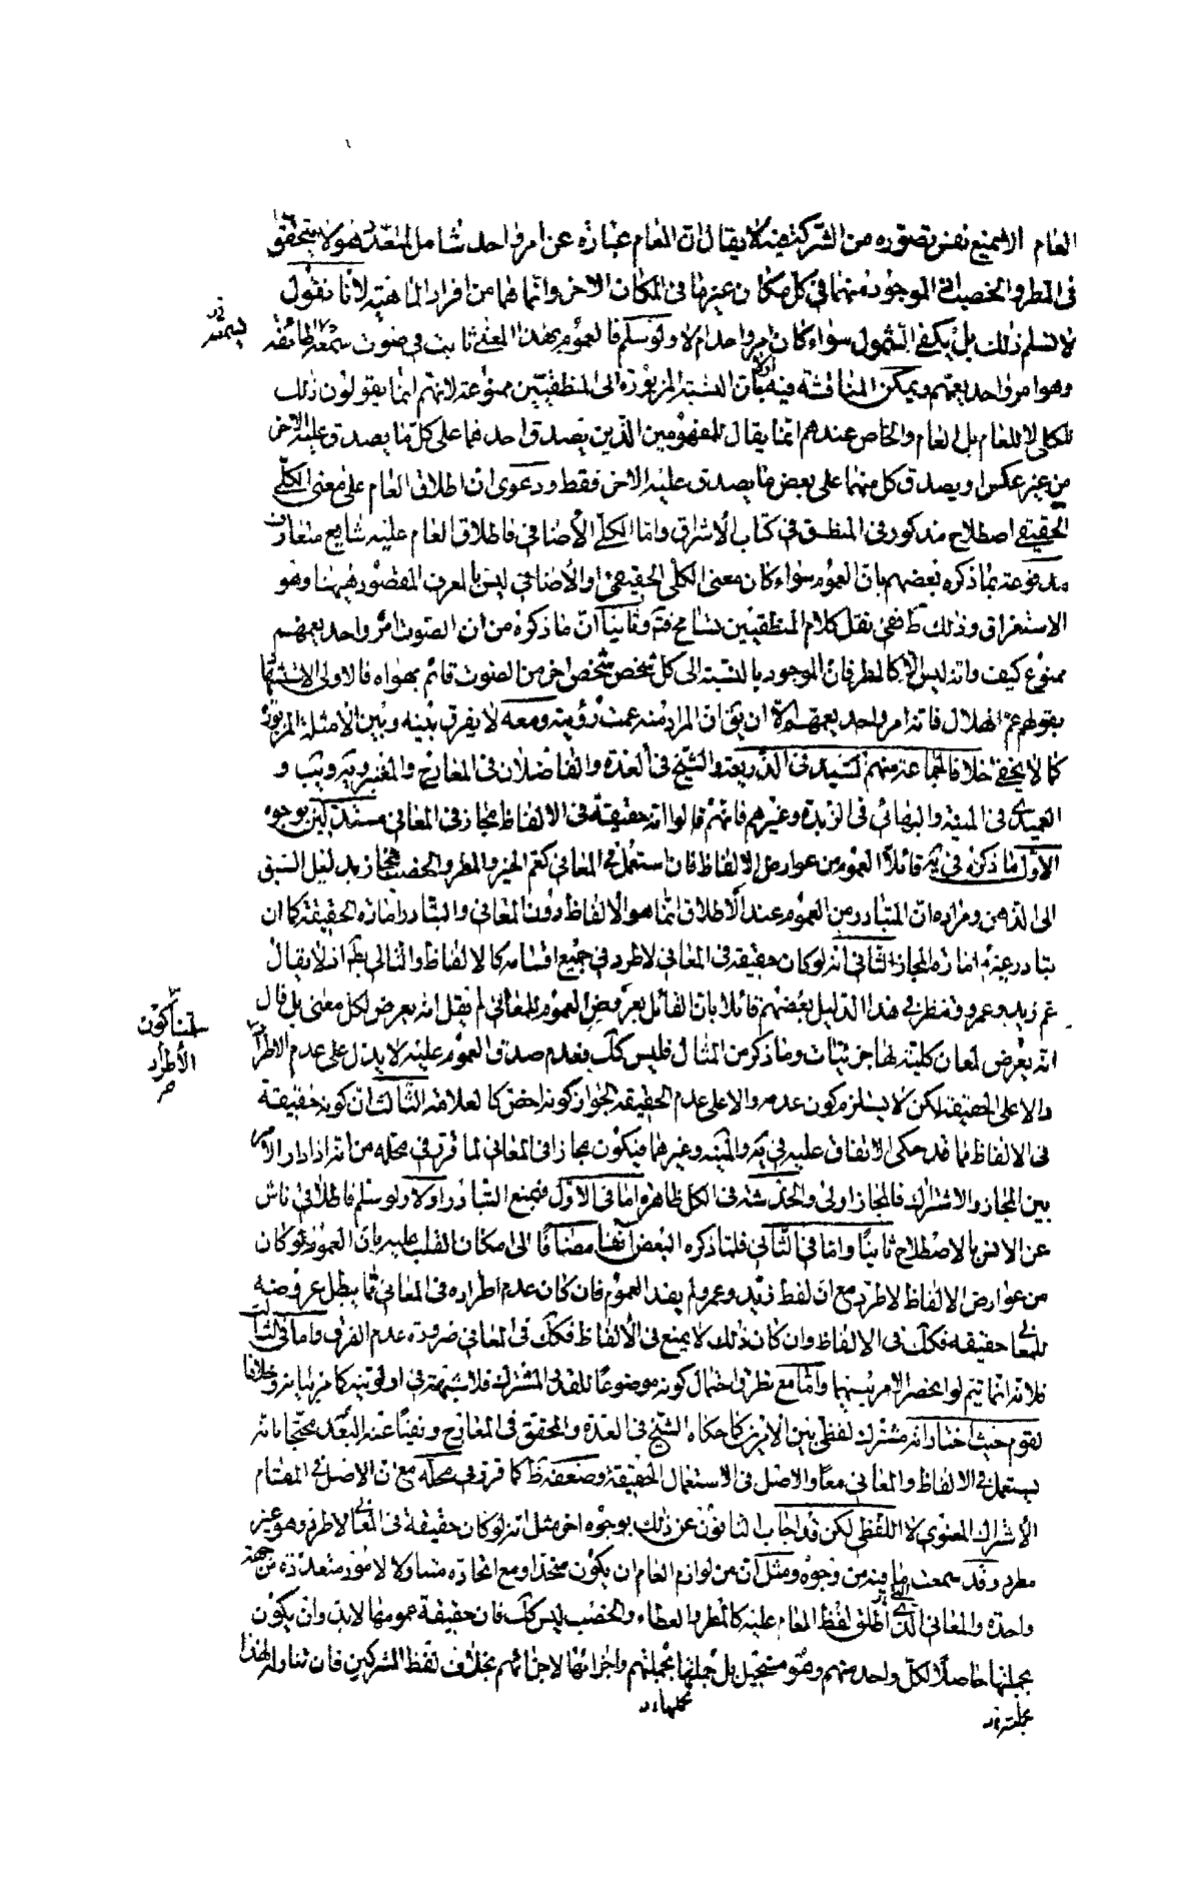 العام الا يمنع نفس تصوره من الشركة فيه لا يقال ان العام عبارة عن امر واحد شامل لمتعدد وهو لا يتحقق
فى المطر والخصب اذ الموجود منهما فى كل مكان غيرهما فى المكان الاخر وانما هما من افراد الماهية لانا نقول
لا نسلم ذلك بل يكفى الشمول سواء كان امر واحد ام لا ولو سلم فالعموم بهذا المعنى ثابت فى صوت سمعه طائفة
وهو امر واحد يعمهم ويمكن المناقشة فيه اولا بان النسبة المزبورة الى المنطقيين ممنوعة لانهم انما يقولون ذلك
للكلى لا للعام بل العام والخاص عندهم انما يقال للمفهومين الذين يصدق احدهما على كل ما يصدق عليه الاخر
من غير عكس او يصدق كل منهما على بعض ما يصدق عليه الاخر فقط ودعوى ان اطلاق العام على معنى الكلى
الحقيقى اصطلاح مذكور فى المنطق فى كتاب الاشراق واما الكلى الاضافى فاطلاق العام عليه شايع متعارف
مدفوعة بما ذكره بعضهم بان العموم سواء كان معنى الكلى الحقيقى او الاضافى ليس بالعرف المقصود ههنا وهو
الاستغراق وذلك ففى نقل كلام المنطقيين تسامح فتم وثانيا ان ما ذكره من ان الصوت امر واحد يعمهم
ممنوع كيف وانه ليس الا كالمطر فان الموجود بالنسبة الى كل شخص شخص اخر من الصوت قائم بهواه فالاولى الاستشهاد
بقولهم عم الهلال فانه امر واحد يعمهم الا ان يق ان المراد منه عمت رؤيته ومعه لا يفرق بينه وبين الامثلة المزبورة
كما لا يخفى خلافا لجماعة منهم السيد فى الذريعة والشيخ فى العدة والفاضلان فى المعارج والمنية ويه ويب و
العميدى فى المنية والبهائى فى الزبدة وغيرهم فانهم قالوا انه حقيقة فى الالفاظ مجاز فى المعانى مستدلين بوجوه
الاول ما ذكره فى يه قائلا العموم من عوارض الالفاظ فان استعمل فى المعانى كعم الخير والمطر والخصب فمجاز بدليل السبق
الى الذهن ومراده ان المتبادر من العموم عند الاطلاق انما هو الالفاظ دون المعانى والتبادر امارة الحقيقة كما ان
تبادر غيره امارة المجاز الثانى انه لو كان حقيقة فى المعانى لاطرد فى جميع اقسامه كالالفاظ والتالى بط اذ لا يقال
عم زيد وعمرو ونظر فى هذا الدليل بعضهم قائلا بان القائل بعروض العموم للمعانى لم يقل انه يعرض لكل معنى بل قال
انه يعرض لمعان كلية لها جزئيات وما ذكر من المثال فليس كك فعدم صدق العموم عليه لا يدل على عدم الاطراد
سلمنا كون
الاطراد
دالا على الحقيقة لكن لا يستلزم كون عدمه دالا على عدم الحقيقة لجواز كونه اخص كالعلامة الثالث ان كونه حقيقة
فى الالفاظ مما قد حكى الاتفاق عليه فى يه والمنية وغيرهما فيكون مجازا فى المعانى لما قرر فى محله من انه اذا دار الامر
بين المجاز والاشتراك فالمجاز اولى والخدشة فى الكل ظاهرة اما فى الاول فبمنع التبادر اولا ولو سلم فاطلاقى ناش
عن الانس بالاصطلاح ثانيا واما فى الثانى فلما ذكره البعض آنفا مضافا الى امكان القلب عليه بان العموم لو كان
من عوارض الالفاظ لاطرد مع ان لفظ زيد وعمرو لم يفد العموم فان كان عدم اطراده فى المعانى مما يبطل عروضه
للمعانى حقيقة فكك فى الالفاظ وان كان ذلك لا يمنع فى الالفاظ فكك فى المعانى ضرورة عدم الفرق واما فى الثالث
فلانه انما يتم لو انحصر الامر بينهما واما مع نظرق احتمال كونه موضوعا للقدر المشترك فلا شبهة فى اولويته كما مر بيانه وخلافا
لقوم حيث اختاروا انه مشترك لفظى بين الامرين كما حكاه الشيخ فى العدة والمحقق فى المعارج ونفيا عنه البعد محتجا بانه
يستعمل فى الالفاظ والمعانى معا والاصل فى الاستعمال الحقيقة وضعفه ظ كما قرر فى محله مع ان الاصل فى المقام
الاشتراك المعنوى لا اللفظى لكن قد اجاب النافون عن ذلك بوجوه اخر مثل انه لو كان حقيقة فى المعانى لاطرد وهو غير
مطرد وقد سمعت ما فيه من وجوه ومثل ان من لوازم العام ان يكون متحدا ومع اتحاده متناولا لامور متعددة من جهة
واحدة والمعانى التى اطلق لفظ العام عليه كالمطر والعطاء والخصب ليس كك فان حقيقة عمومها لا بد وان يكون
بجملتها حاصلا لكل واحد منهم وهو مستحيل بل جملتها لجملتهم واجزائها لاجزائهم بخلاف لفظ المشركين فان تناوله لهذا